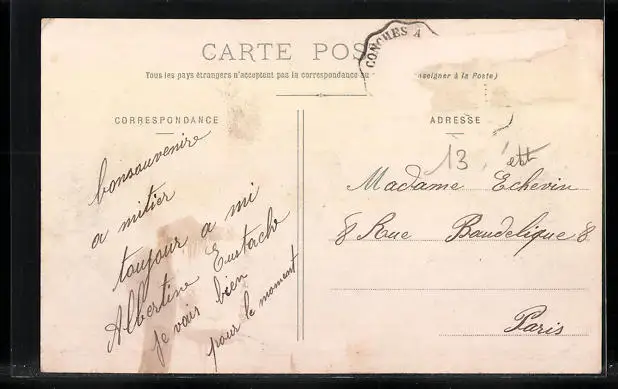 CARTE POS
CONCHES A
Tous les pays étrangers n'acceptent pas la correspondance au
nseigner à la Poste)
CORRESPONDANCE
bonsouvenire
a mitier
toujour a mi
Albertine Eustache
je vais bien
pour le moment
ADRESSE
13
Madame Echevin
8 Rue Baudelique 8
Paris